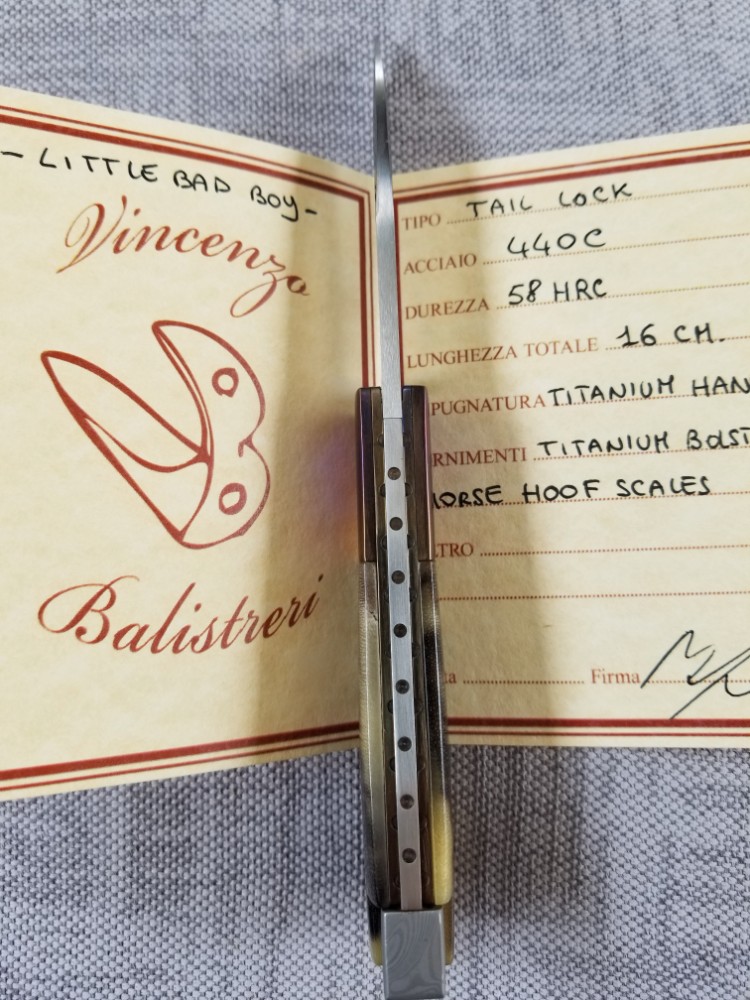 - LITTLE BAD BOY -
Vincenzo
Balistreri
TIPO TAIL LOCK
ACCIAIO 440C
DUREZZA 58 HRC
LUNGHEZZA TOTALE 16 CM.
PUGNATURA TITANIUM HAN
RNIMENTI TITANIUM BOLST
HORSE HOOF SCALES
LTRO
Firma